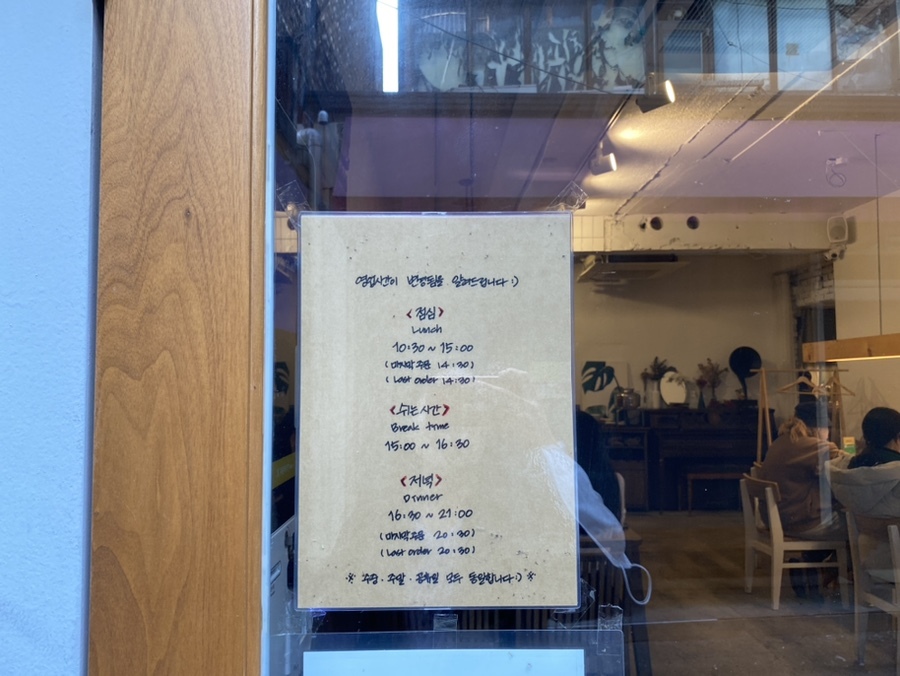 영업시간이 변경됨을 알려드립니다 :)
<점심>
Lunch
10:30 ~ 15:00
(마지막 주문 14:30)
(Last order 14:30)
<쉬는시간>
Break time
15:00 ~ 16:30
<저녁>
Dinner
16:30 ~ 21:00
(마지막 주문 20:30)
(Last order 20:30)
※ 주중·주말·공휴일 모두 동일합니다 :) ※